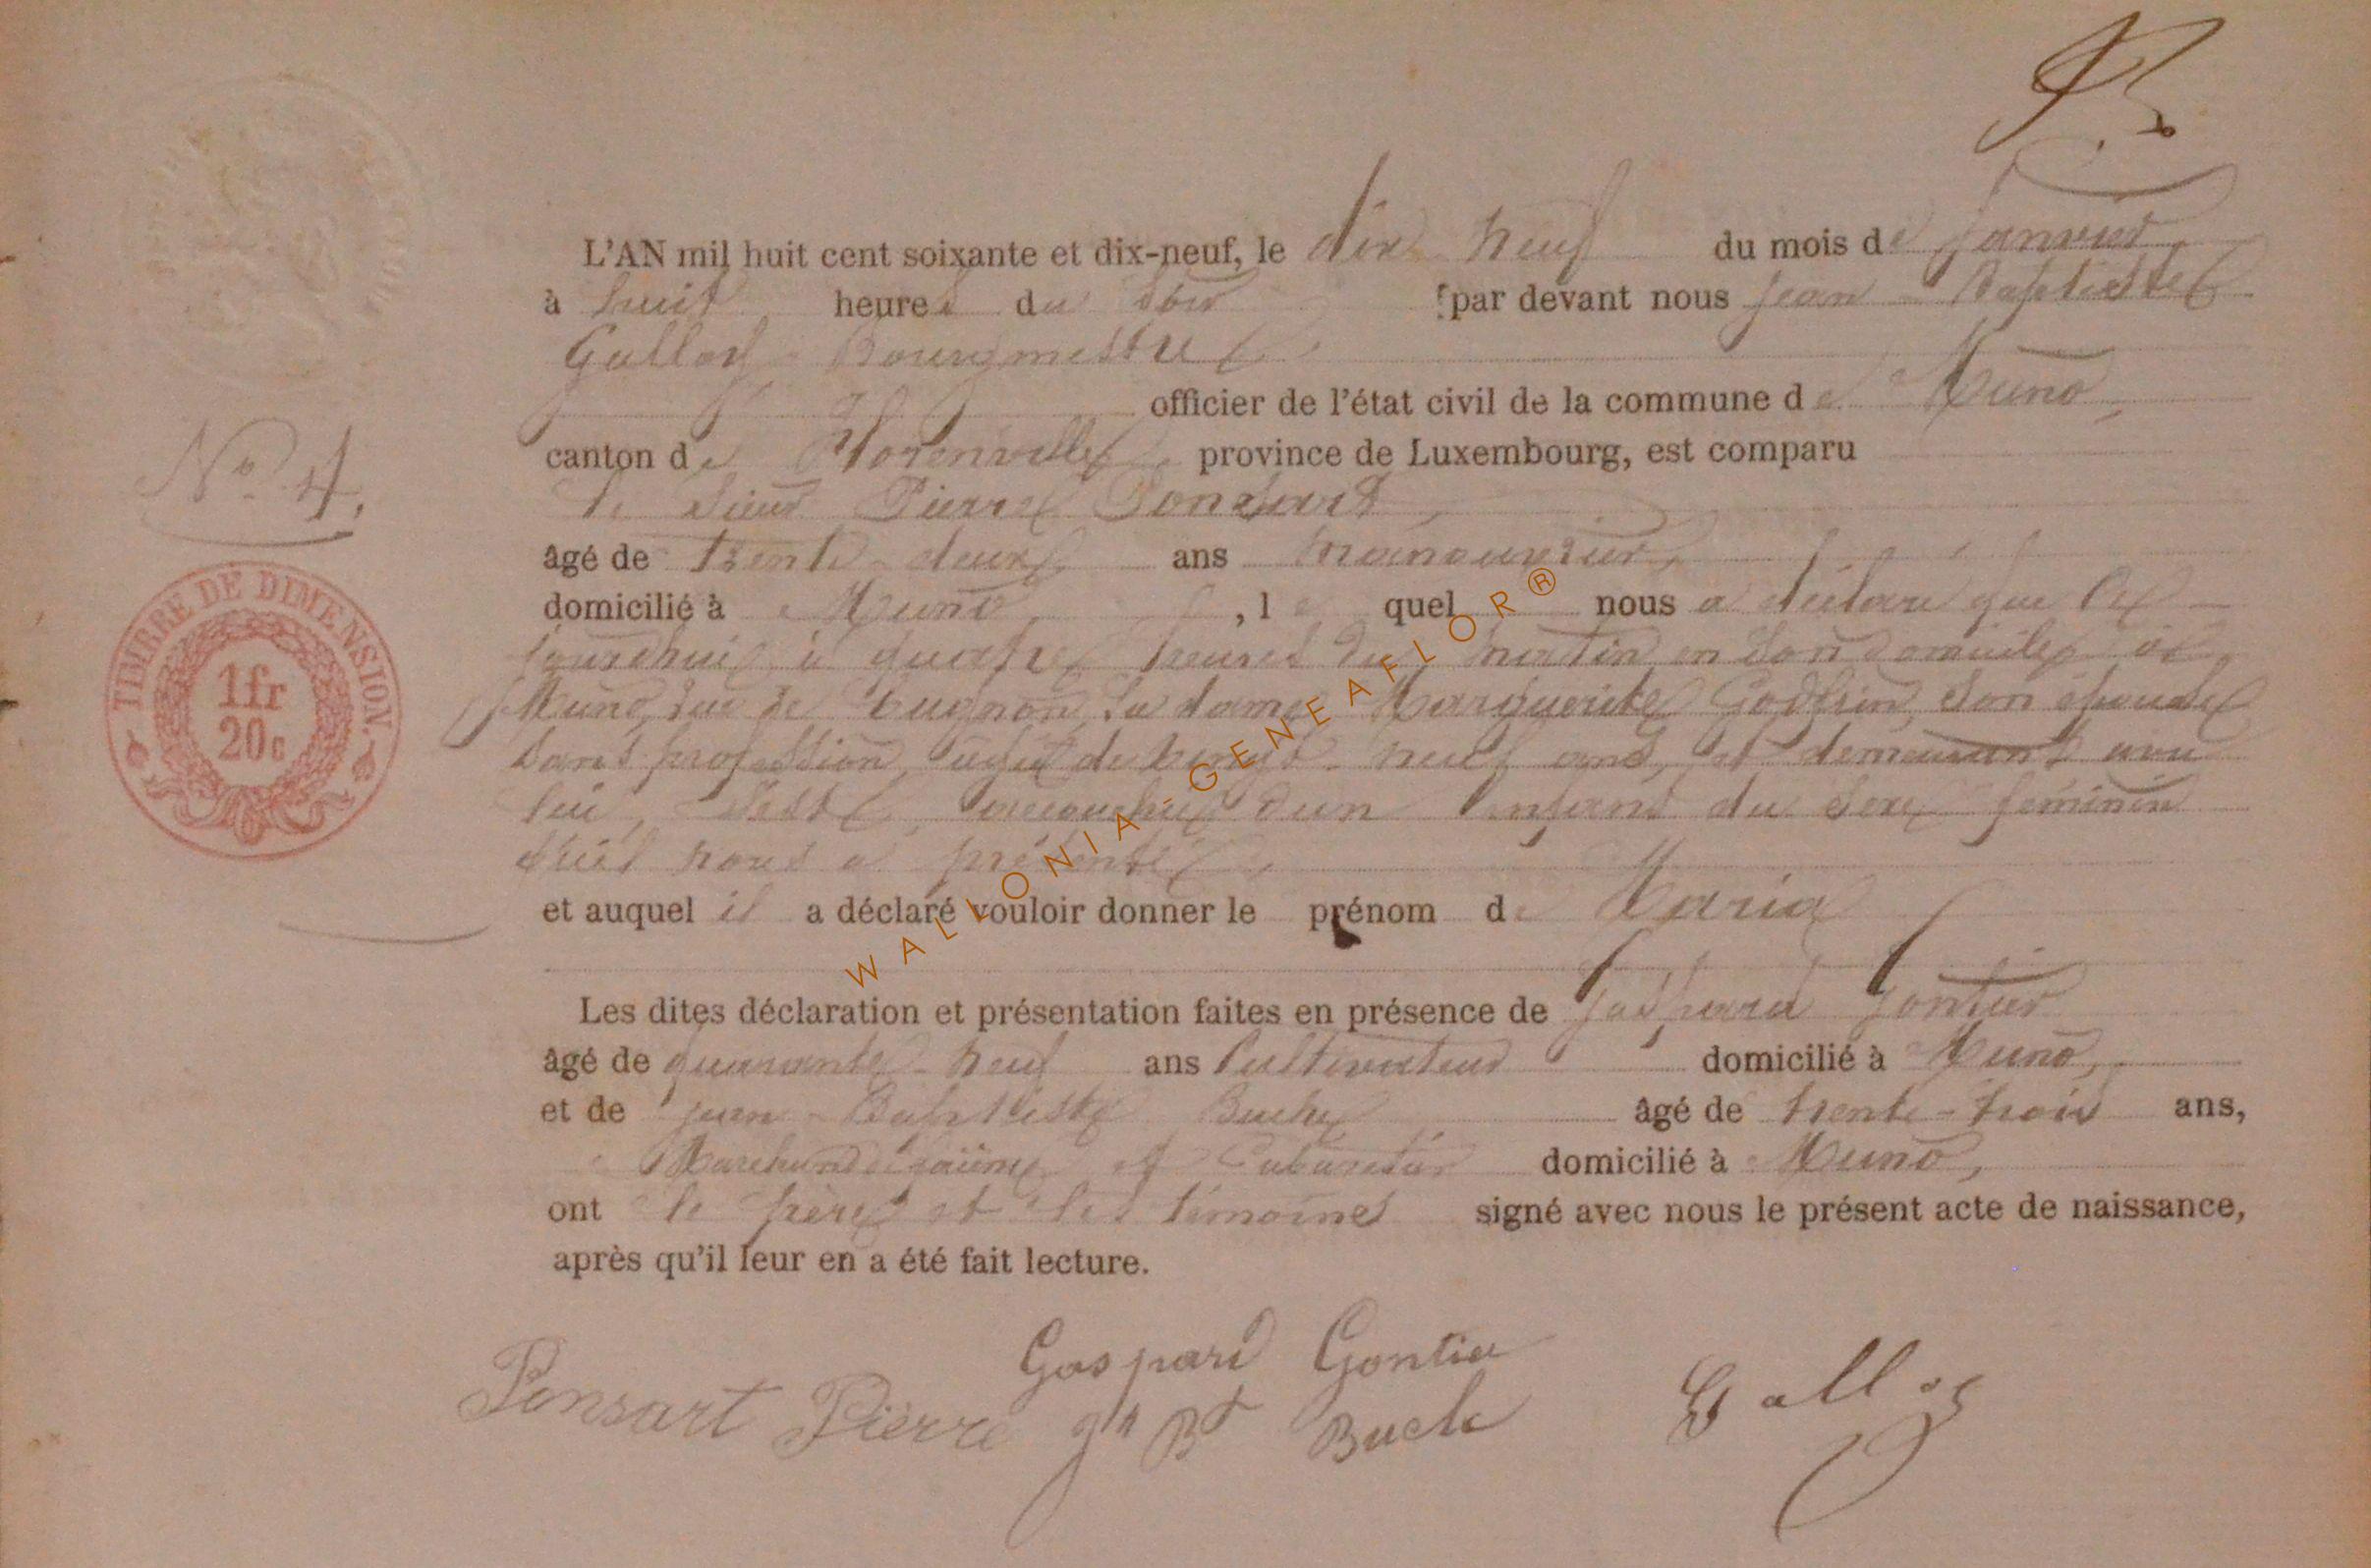 L'AN mil huit cent soixante et dix-neuf, le dix neuf du mois de Janvier
à huit heures du soir par devant nous Jean-Baptiste
Bourgmestre
officier de l'état civil de la commune de Muno,
N° 4.
canton de Florenville province de Luxembourg, est comparu
le sieur Pierre Ponsart,
âgé de trente-deux ans manouvrier,
domicilié à Muno, lequel nous a déclaré que ce
jourdhui à quatre heures du matin en son domicile à
Muno, rue de la dame Marguerite son épouse
sans profession, âgée de vingt-neuf ans, et demeurant avec
lui, s'est accouchée d'un enfant du sexe féminin
qu'il nous a présenté
et auquel il a déclaré vouloir donner le prénom de Maria
Les dites déclaration et présentation faites en présence de Gaspard Gontier
âgé de quarante-neuf ans Cultivateur domicilié à Muno,
et de Jean-Baptiste Buche âgé de trente-trois ans,
Marchand et Cabaretier domicilié à Muno,
ont le père et les témoins signé avec nous le présent acte de naissance,
après qu'il leur en a été fait lecture.
Gaspard Gontier
Ponsart Pierre Jn Bt Buche
TIMBRE DE DIMENSION.
1fr
20c
WALLONIA-GENEAFLOR®